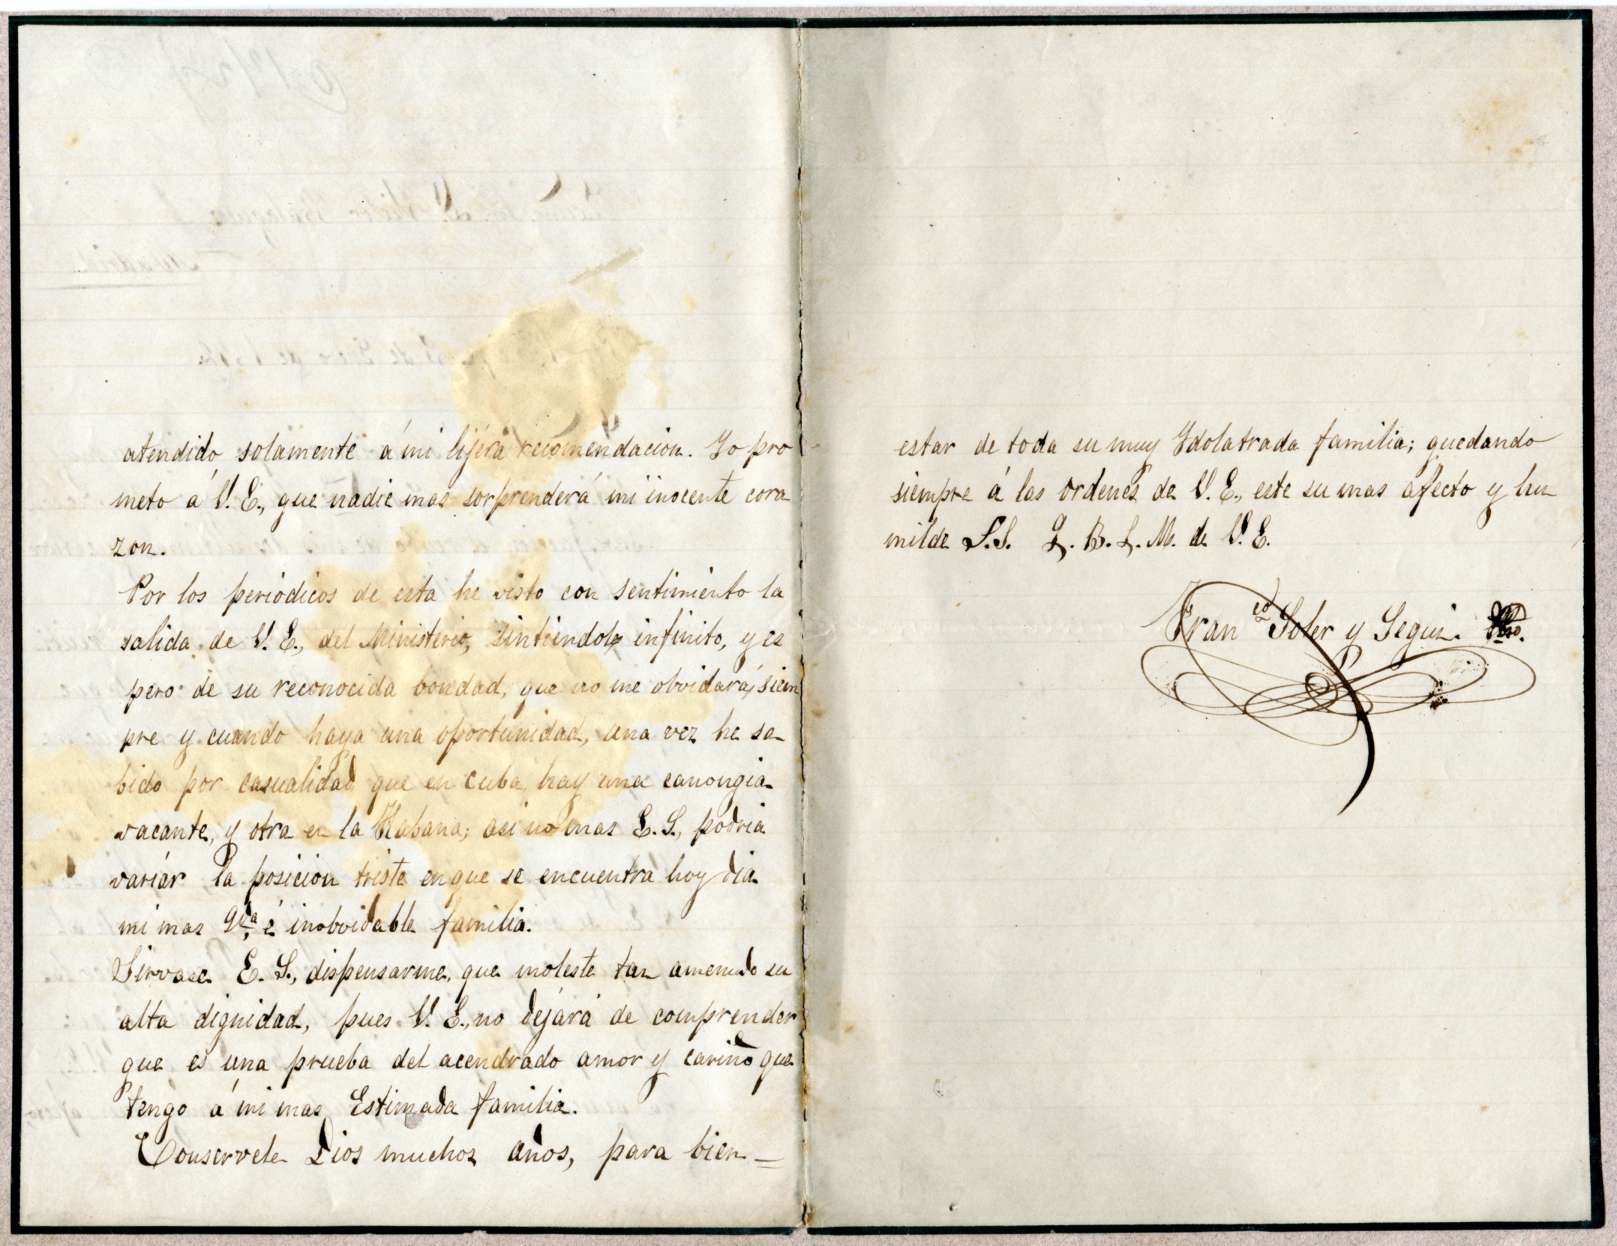 atendido solamente á mi lijera recomendacion. Yo pro
meto a V. E., que nadie mas sorprenderá mi inocente cora
zon.
Por los periódicos de esta he visto con sentimiento la
salida de V. E., del Ministerio, sintiendolo infinito, y es
pero de su reconocida bondad, que no me obvidará, siem
pre y cuando haya una oportunidad, una vez he sa-
bido por casualidad que en Cuba, hay una canongia
vacante, y otra en la Habana; asi no mas E. S., podria
variár la posicion triste en que se encuentra hoy dia
mi mas Qda é inobvidable familia.
Sirvase E. S., dispensarme, que moleste tan amenudo su
alta dignidad, pues V. E., no dejárá de comprender
que es una prueba del acendrado amor y cariño que
tengo á mi mas Estimada familia.
Conservele Dios muchos años, para bien-
estar de toda su muy Ydolatrada familia; quedando
siempre á las ordenes de V. E., este su mas afecto y hu
milde S.S. Q. B. L. M. de V. E.
Franco Soler y Segui. Pbro.